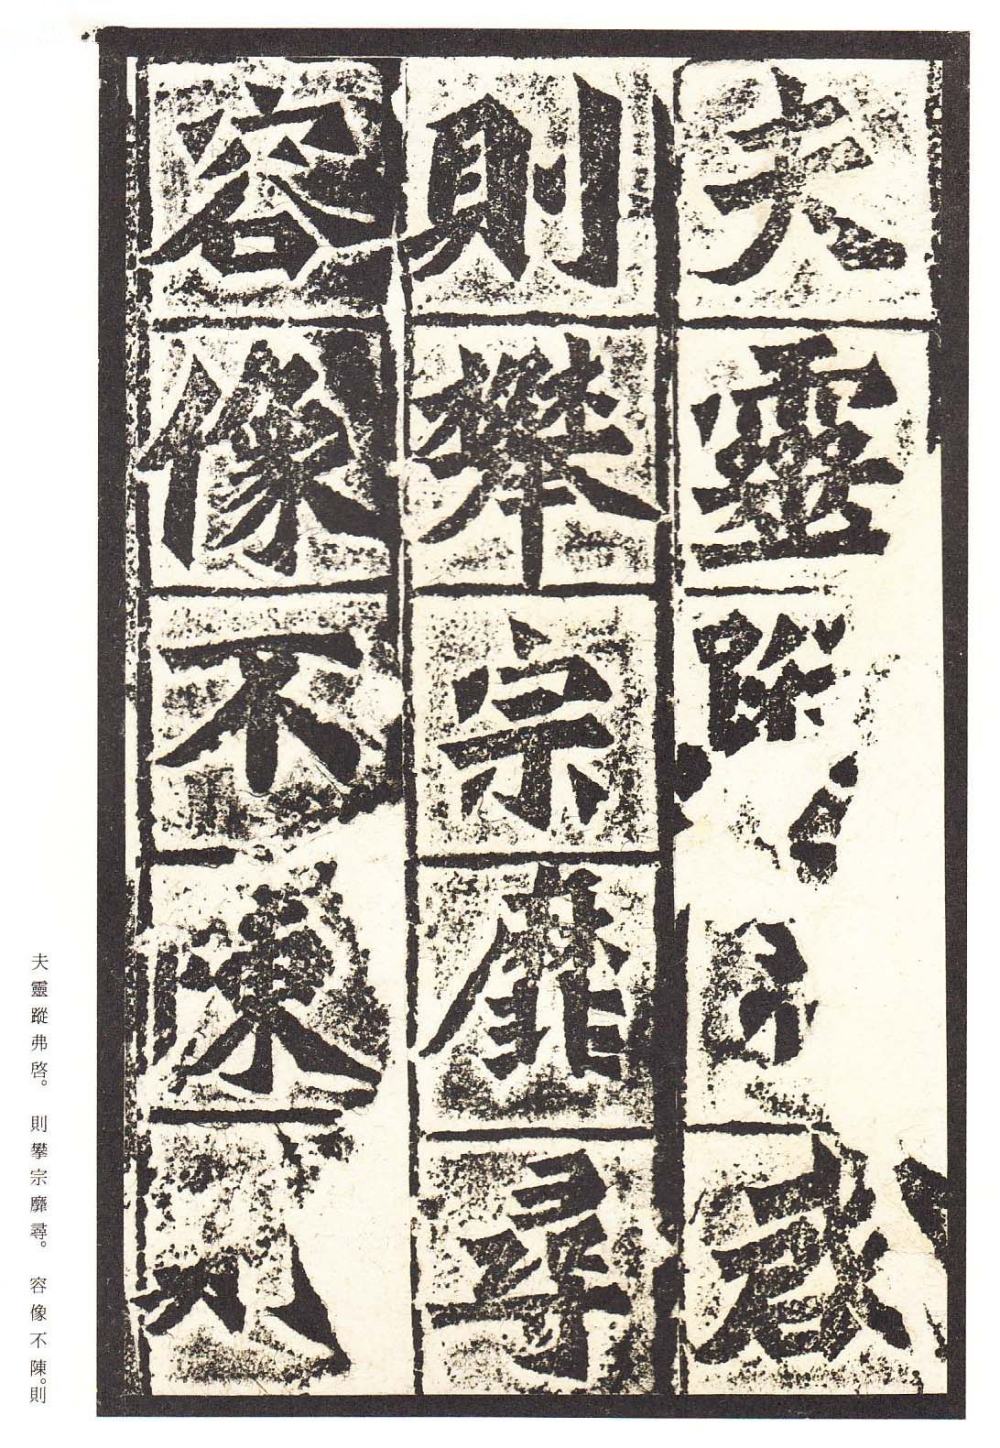 夫靈蹤弗啓
則攀宗靡尋
容像不陳則
夫靈蹤弗啓。 則攀宗靡尋。 容像不陳。則